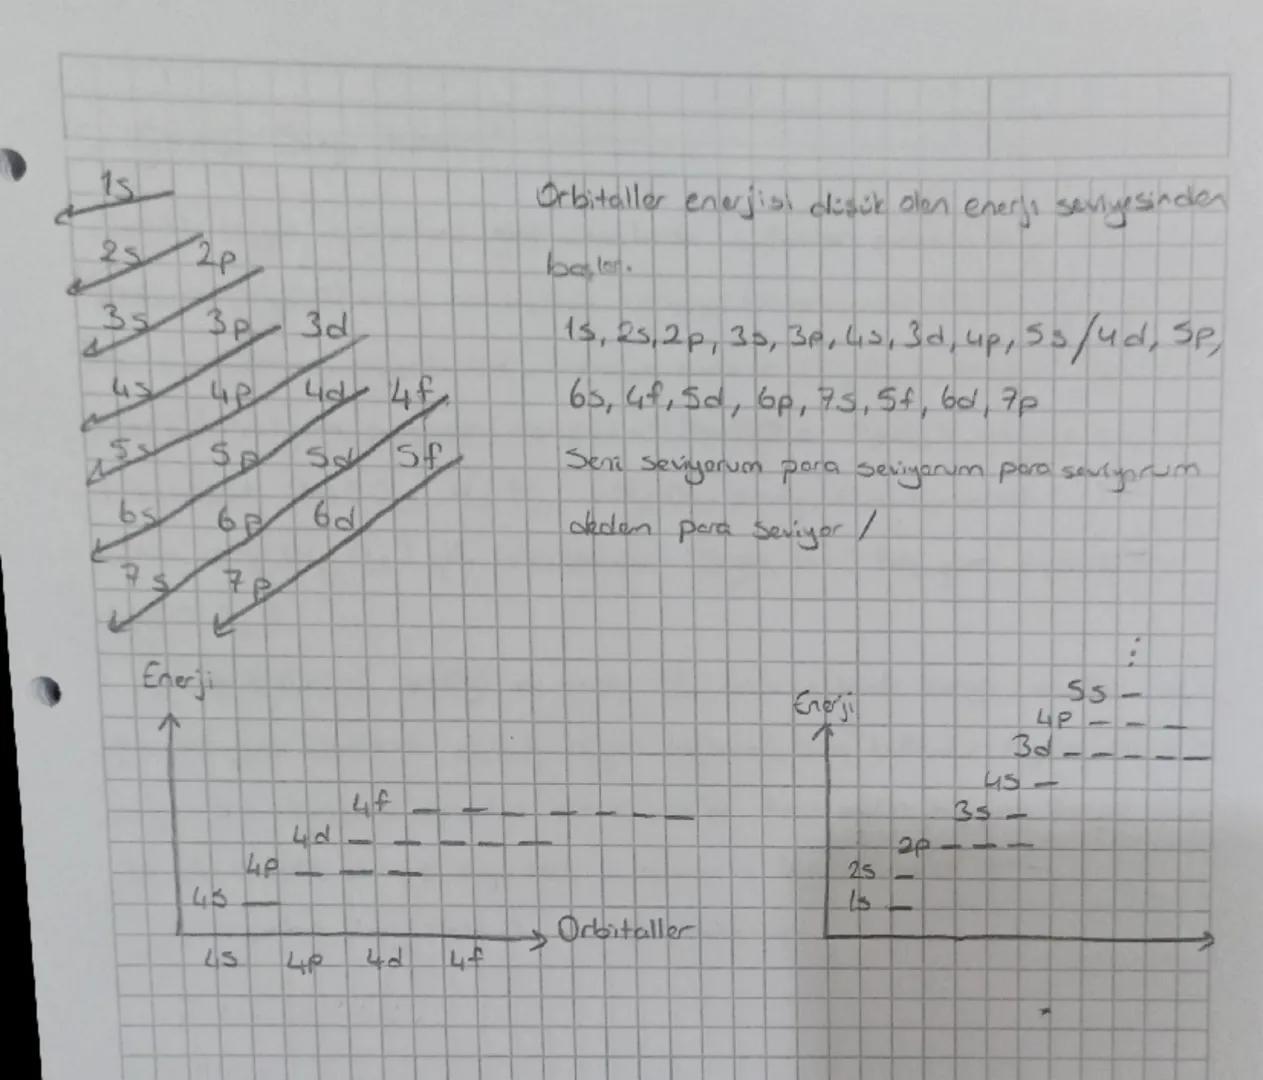 1s
2s 2p
3s 3p 3d
4s 4p 4d 4f
5s 5p 5d 5f
6s 6p 6d
7s 7p
Orbitaller enerjisi düşük olan enerji seviyesinden
başlar.
1s, 2s, 2p, 3s, 3p, 4s, 3d, 4p, 5s/4d, 5p,
6s, 4f, 5d, 6p, 7s, 5f, 6d, 7p
Seni seviyorum para seviyorum para seviyorum
deden para seviyor /
Enerji
4f
4d
4p
4s
Orbitaller
4s 4p 4d 4f
Enerji
5s
4p
3d
4s
3s
2p
2s
1s